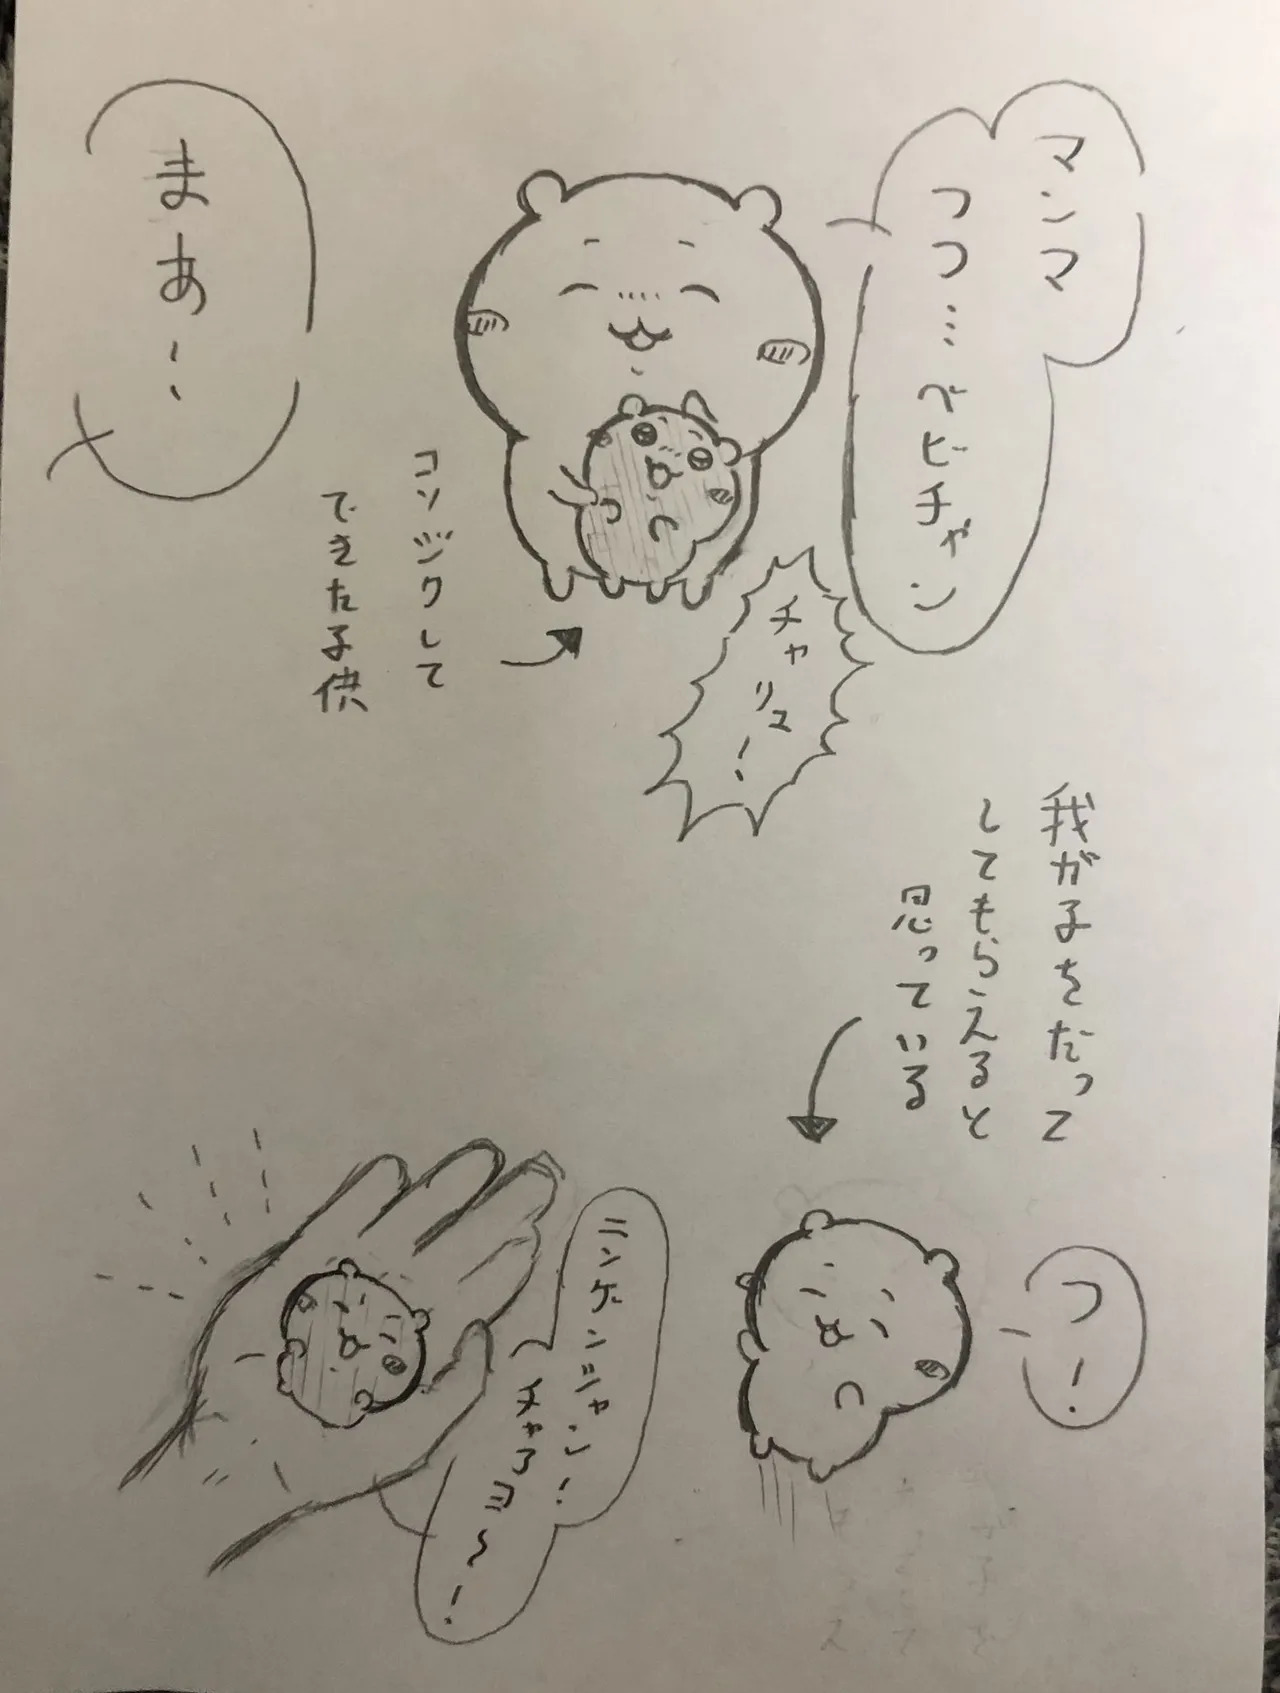 マンマ
つつ…ベビチャン
まぁ〜
コソジクして
できた子供
チャリュ！
我が子をだって
してもらえると
思っている
つ！
ニンゲンジャン！
チャァヨ〜！